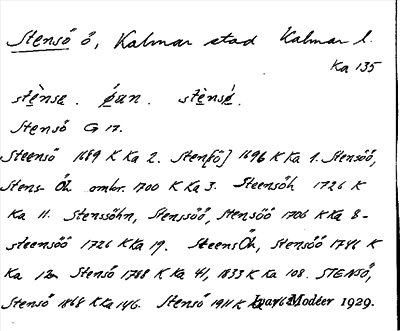 Stensö ö, Kalmar stad Kalmar l.
Ka 135
stènsɛ . . stènsǿ.
Stensö G 17.
Steensö 1689 K Ka 2. Stenſö] 1696 K Ka 1. Stensöö,
Stens- Öh ombr. 1700 K Ka 3. Steensöh 1726 K
Ka 11. Stenssöhn, Stenssöö, Stensöö 1706 K Ka 8-
steensöö 1726 K Ka 19. SteensÖh, Stensöö 1741 K
Ka 12a Stensö 1788 K Ka 41, 1833 K Ka 108. STENSÖ,
Stensö 1868 K Ka 146. Stensö 1911 K Ka Ivar Modéer 1929.